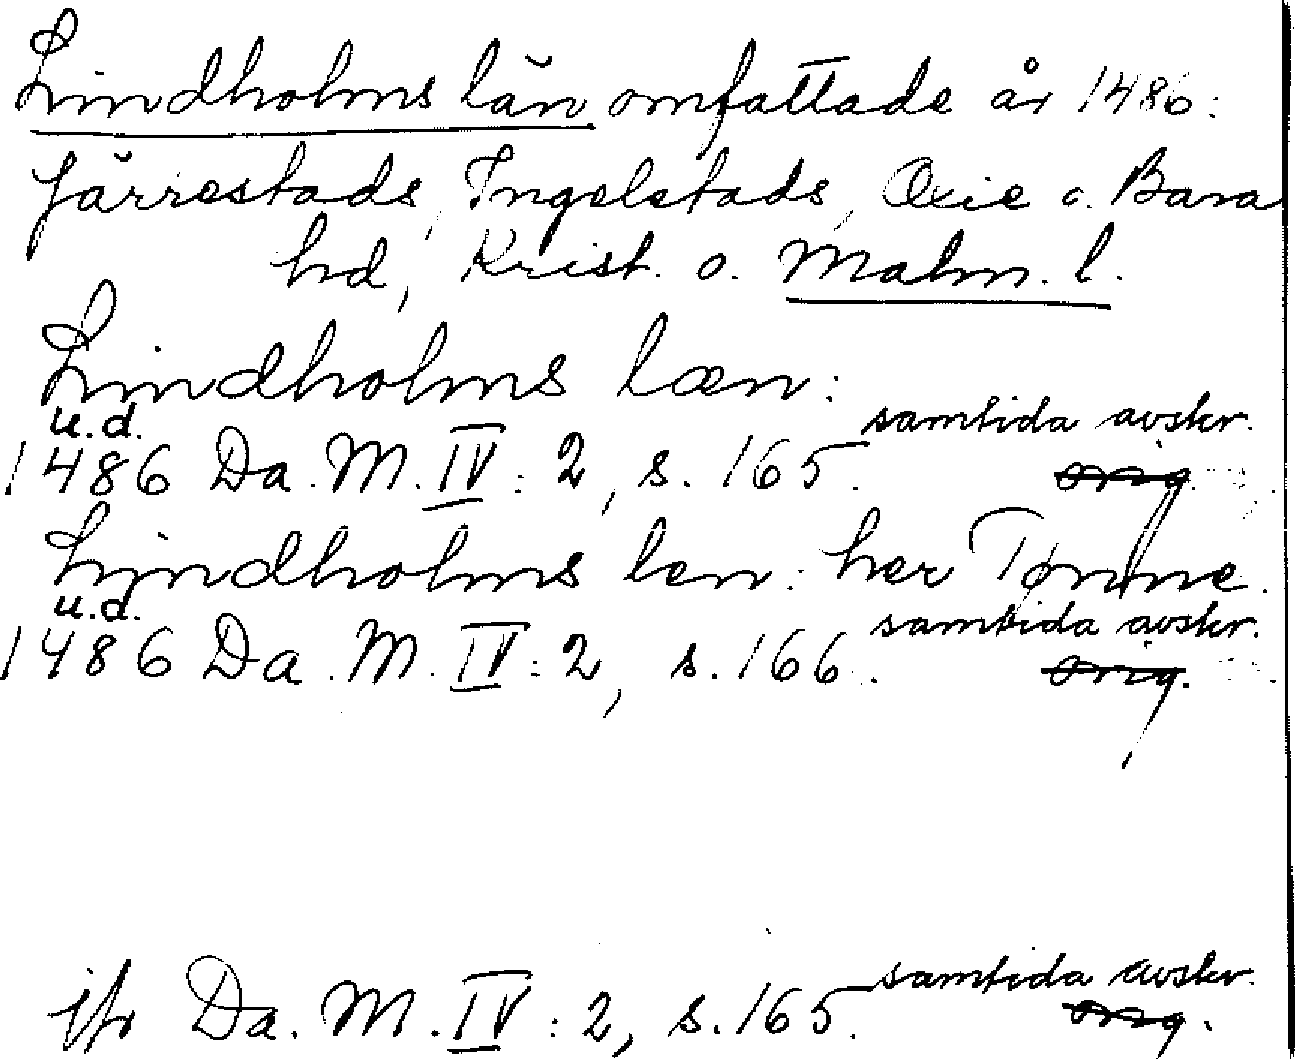 Lindholms län omfattade år 1486:
Järrestads, Ingelstads, Oxie o. Bara
hd, Krist. o. Malm. l.
Lindholms læn:
u.d. samtida avskr.
1486 Da. M. IV: 2, s. 165. orig.
Lindholms len: her Tønne.
u.d. samtida avskr.
1486 Da. M. IV: 2, s. 166. orig.
samtida avskr.
jfr Da. M. IV: 2, s. 165. orig.